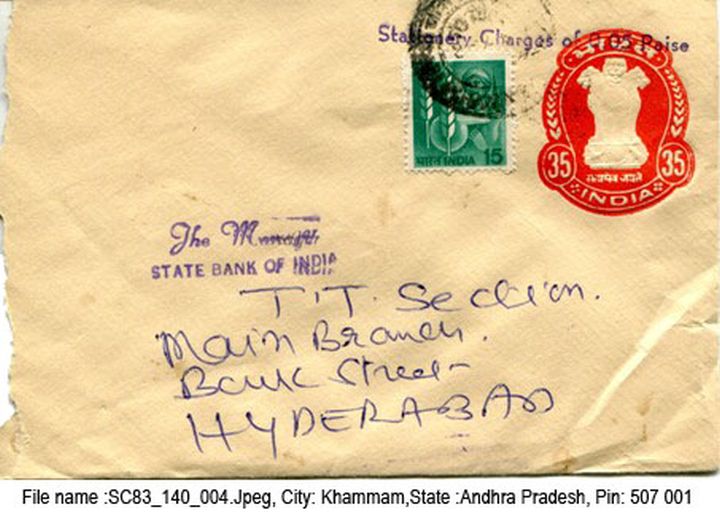 Stationery Charges of 0.05 Paise
भारत
35 35
सत्यमेव जयते
INDIA
भारत INDIA 15
The Manager
STATE BANK OF INDIA
T.T. Section.
Main Branch.
Bank Street
HYDERABAD
File name :SC83_140_004.Jpeg, City: Khammam,State :Andhra Pradesh, Pin: 507 001